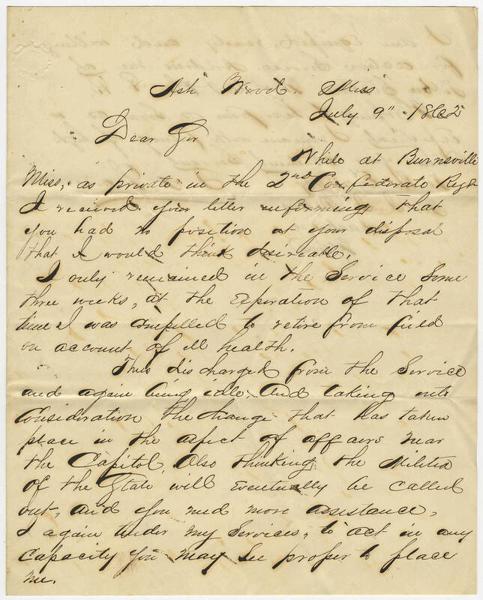 Ash Wood Miss
July 9" 1862
Dear Sir
While at Burnsville
Miss, as private in the 2nd Confederate Regt
I received your letter informing that
you had no position at your disposal
that I would think desireable.
I only remained in the Service some
three weeks, at the Expiration of that
time I was compelled to retire from field
on account of ill health.
Thus discharged from the Service
and again being idle. And taking into
Consideration the change that has taken
place in the aspect of affairs near
the Capitol, Also thinking the Militia
of the State will Eventually be called
out, and you need more assistance,
I again tender my Services, to act in any
Capacity you may see proper to place
me.